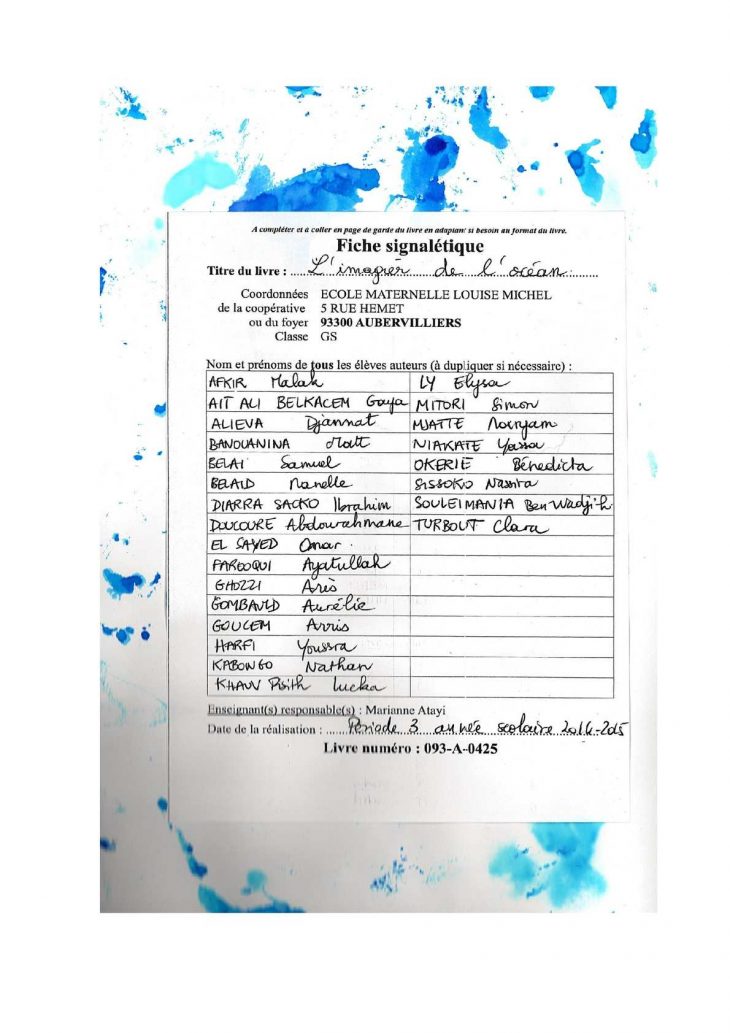 A compléter et à coller en page de garde du livre en adaptant si besoin au format du livre.
Fiche signalétique
Titre du livre : L'imagier de l'océan
Coordonnées ECOLE MATERNELLE LOUISE MICHEL
de la coopérative 5 RUE HEMET
ou du foyer 93300 AUBERVILLIERS
Classe GS
Nom et prénoms de tous les élèves auteurs (à dupliquer si nécessaire) :
AFKIR Malak
AIT ALI BELKACEM Gaya
ALIEVA Djannat
BANOUANINA
BELAI Samuel
BELAID Manelle
DIARRA SACKO Ibrahim
DOUCOURE Abdourahmane
EL SAYED Omar
FAROOQUI Ayatullah
GHOZZI Arès
GOMBAULD Aurélie
GOUCEM Arris
HARFI Youssra
KABONGO Nathan
KHAUV Pisith Lucka
LY Elysa
MITORI Simon
MJATTE Mouryam
NIAKATE Yassa
OKERIE Bénedicta
SISSOKO Nassira
SOULEIMANIA Ben Wadjih
TURBOUT Clara
Enseignant(s) responsable(s) : Marianne Atayi
Date de la réalisation : Periode 3 année scolaire 2014-2015
Livre numéro : 093-A-0425